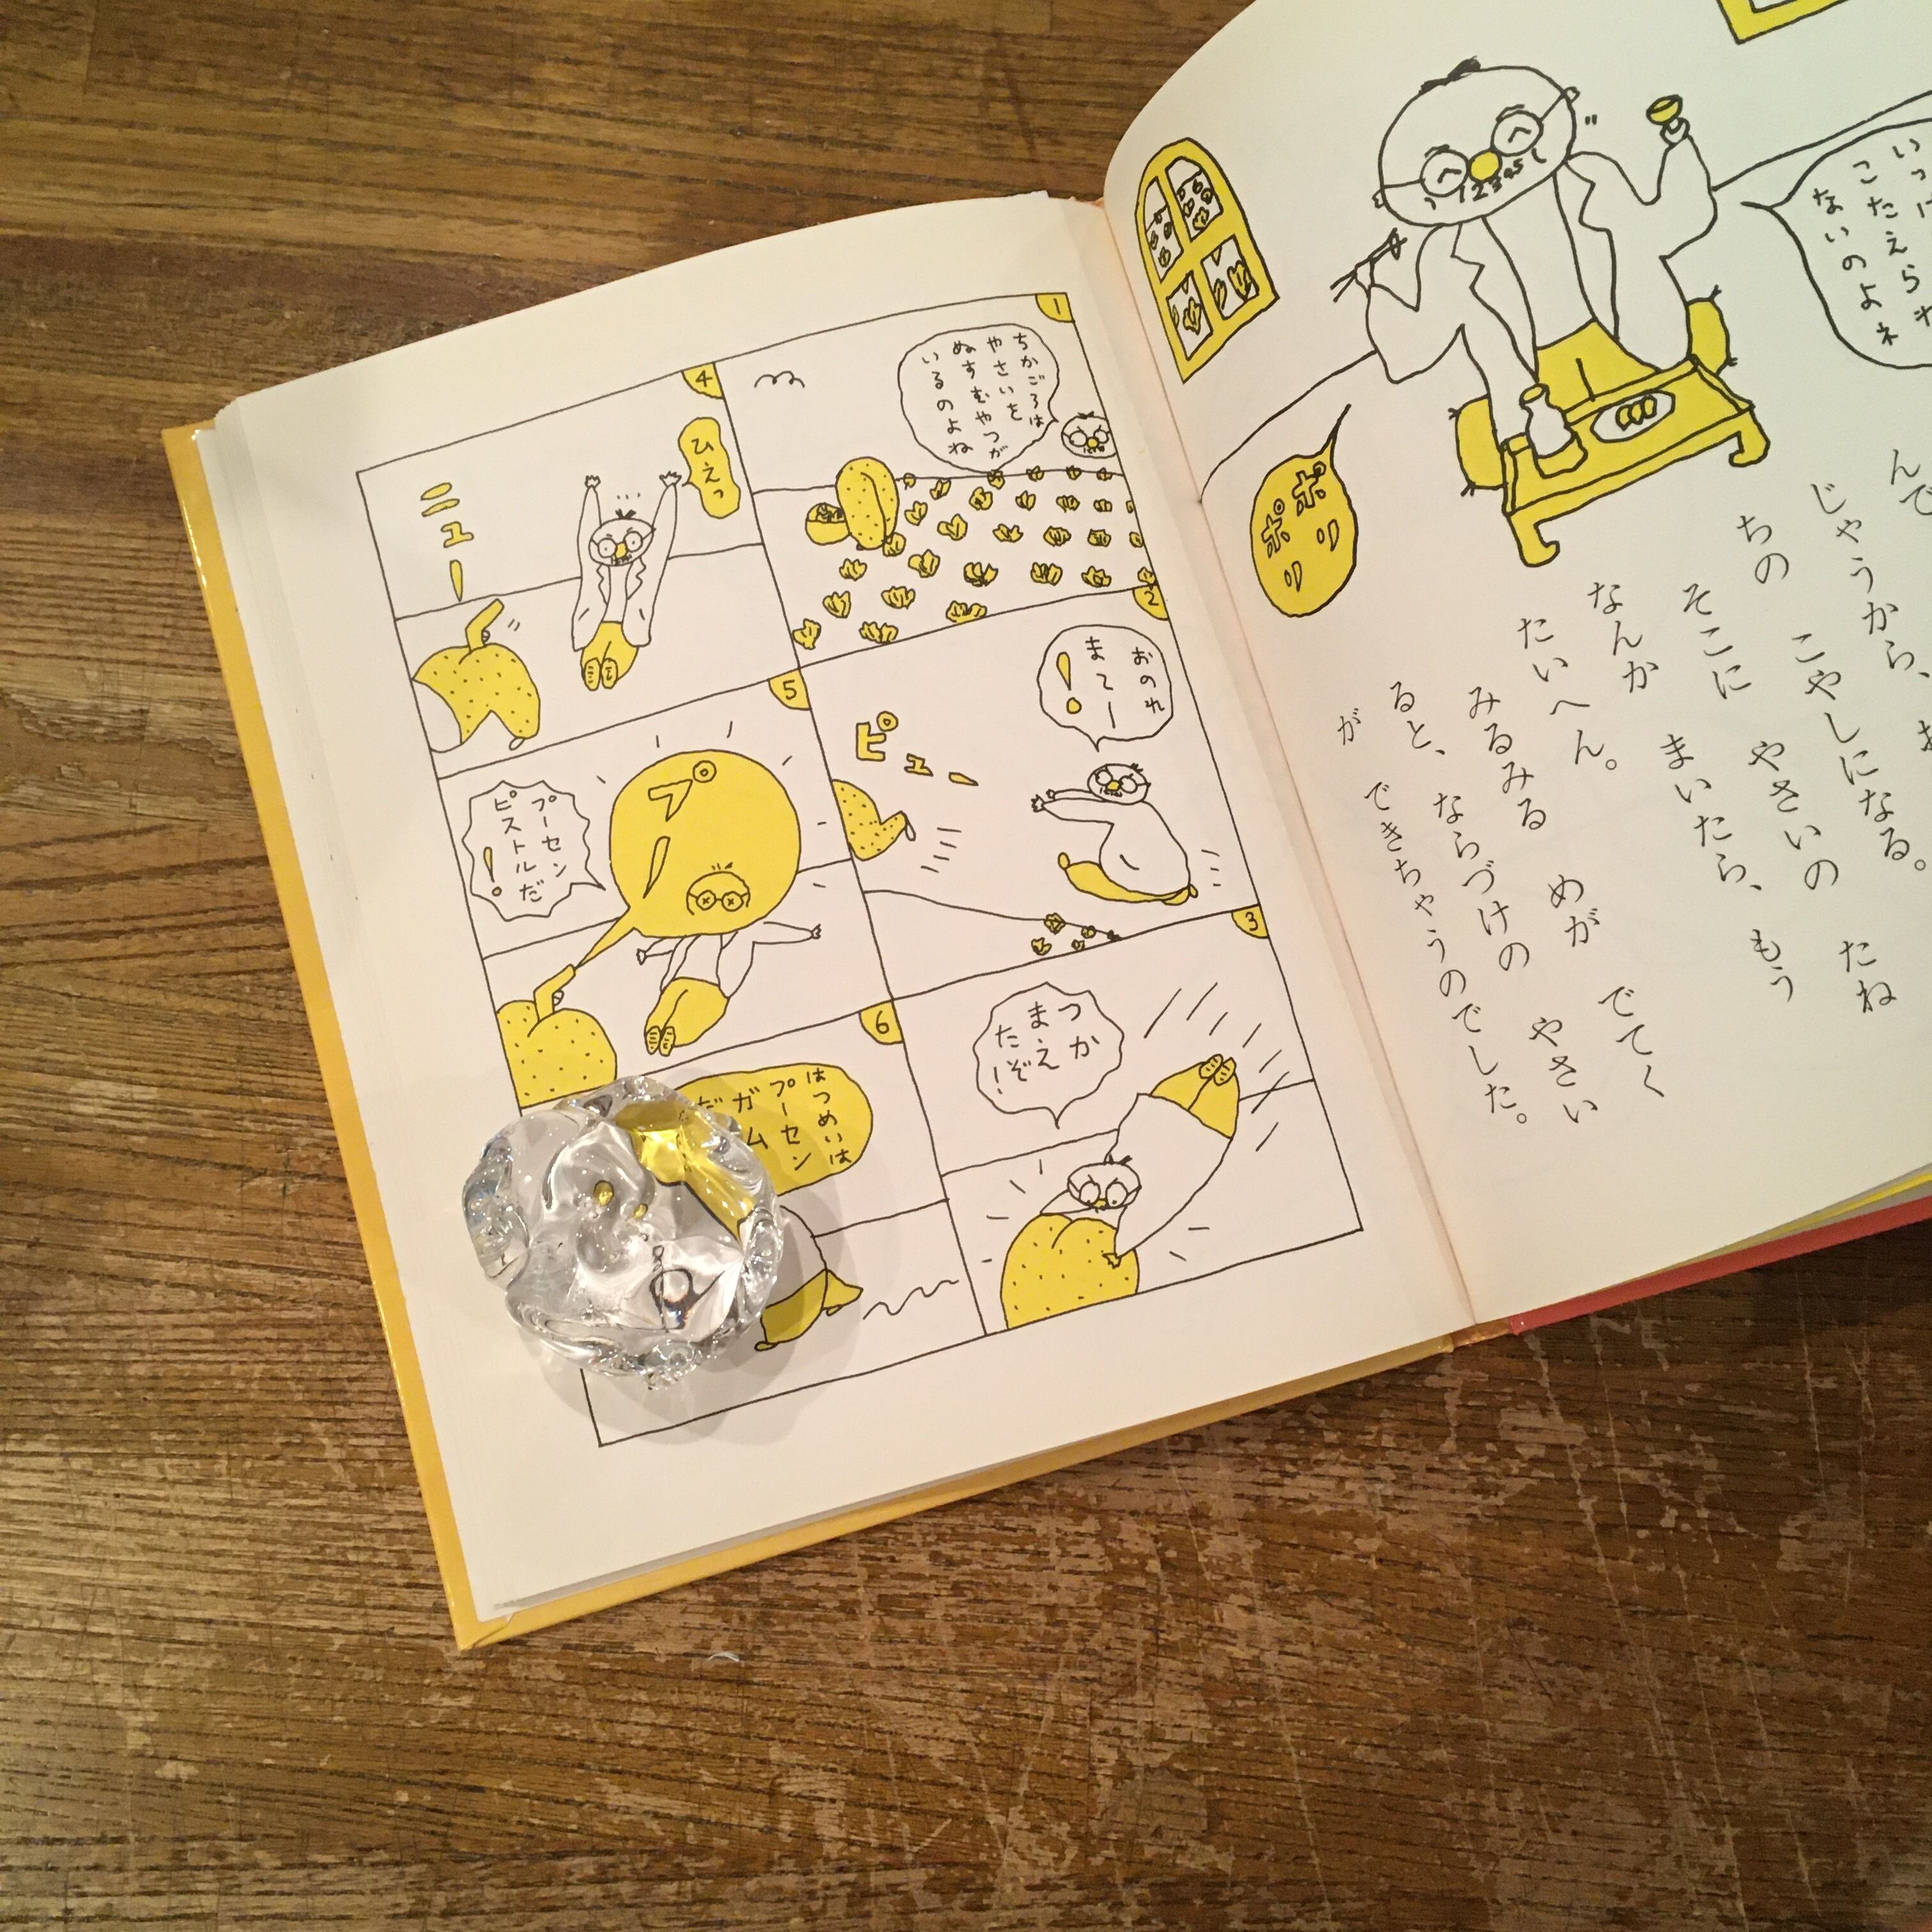 こたえられ
ないのよネ
ポリ
ポリ
んで
じゃうから、
ちの こやしになる。
そこに やさいの たね
なんか まいたら、もう
たいへん。
みるみる めが でてく
ると、ならづけの やさい
が できちゃうのでした。
1
ちかごろは
やさいを
ぬすむやつが
いるのよね
2
おのれ
まてー
!
ピュー
3
つか
まえ
たぞ!
4
ひえっ
ニュー
5
プー
プーセン
ピストルだ
!
6
はつめいは
プーセン
ガム
だ